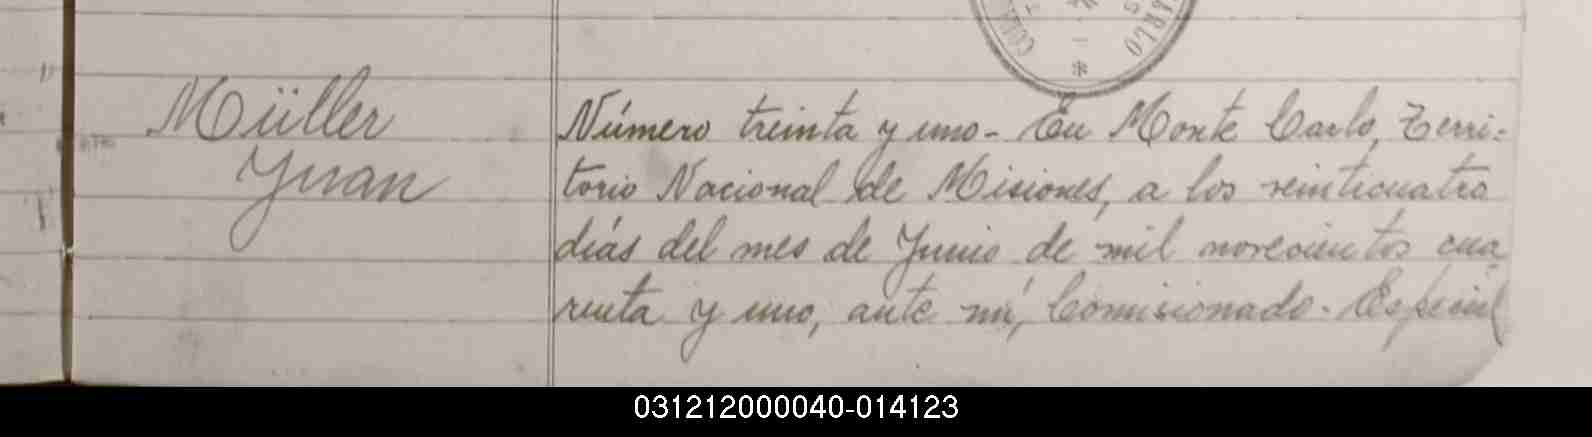 Müller
Juan
Número treinta y uno - En Monte Carlo, Terri=
torio Nacional de Misiones, a los veinticuatro
días del mes de Junio de mil novecientos cua
renta y uno, ante mí, Comisionado. Especial
031212000040-014123